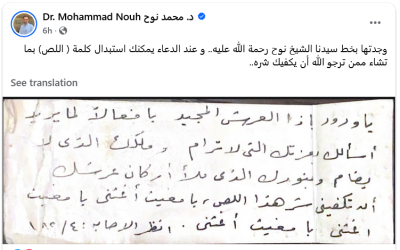 Dr. Mohammad Nouh د. محمد نوح
6h
وجدتها بخط سيدنا الشيخ نوح رحمة الله عليه.. و عند الدعاء يمكنك استبدال كلمة ( اللص) بما
تشاء ممن ترجو الله أن يكفيك شره..
See translation
يا ودود يا ذا العرش المجيد يا فعالاً لما يريد
أسألك بعزتك التي لا ترام وملكك الذي لا
يضام وبنورك الذي ملأ أركان عرشك
أن تكفيني شر هذا اللص، يا مغيث أغثني يا مغيث
اغثني يا مغيث أغثني. انظر الاصابة: ٤/١٨٢